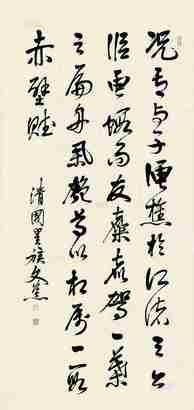 況吾与子漁樵於江渚之上
侶魚蝦而友麋鹿駕一葉
之扁舟舉匏尊以相屬一段
赤壁賦